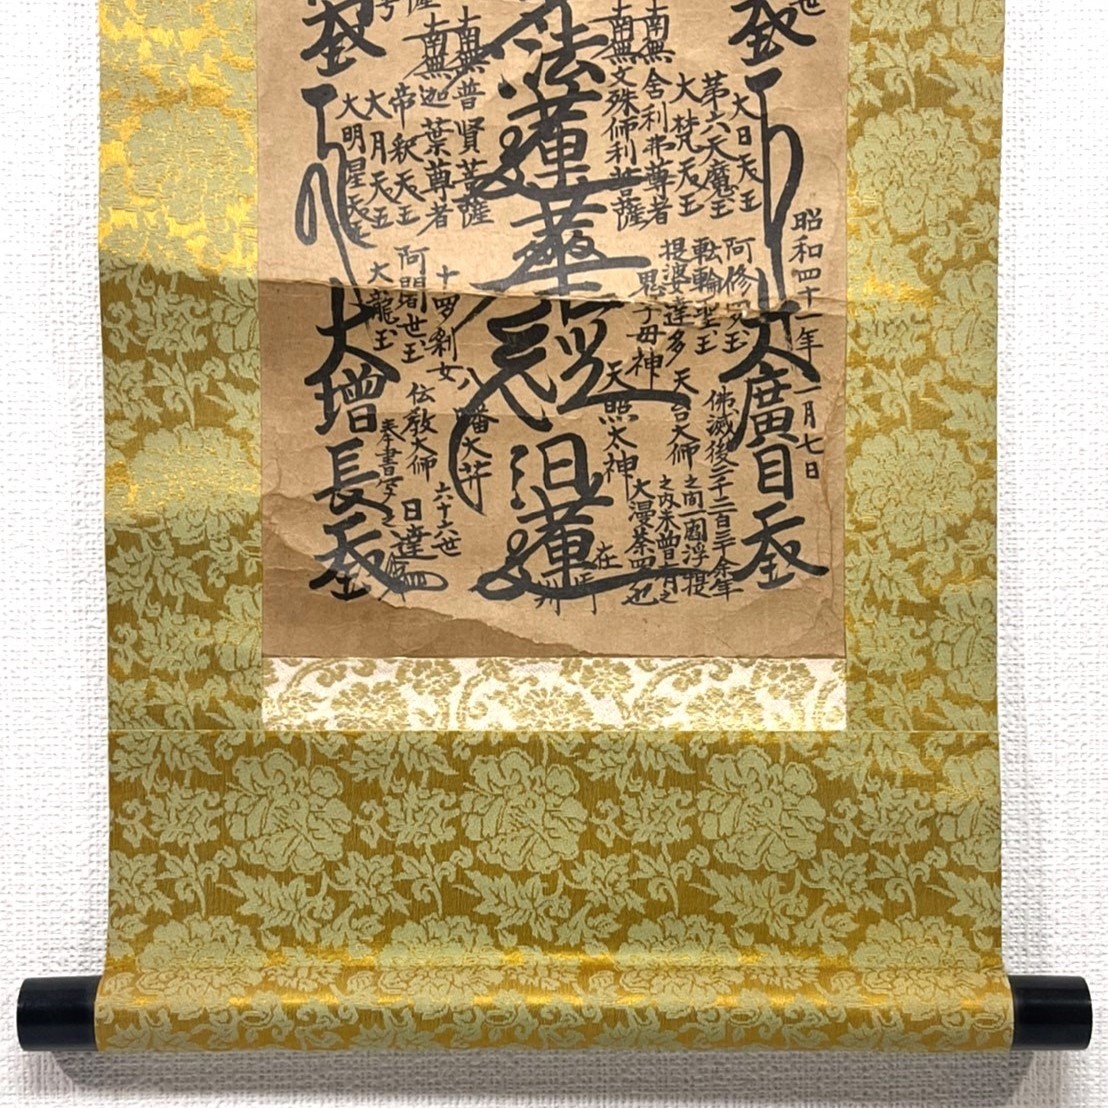 昭和四十一年一月七日
大廣目天王
大日天王
第六天魔王
大梵天王
南無舍利弗尊者
南無文殊師利菩薩
阿修羅王
転輪聖王
提婆達多
鬼子母神
佛滅後二千二百三十余年
之間一閻浮提
之内未曾有之
大漫荼羅也
天台大師
天照太神
法蓮華経
日蓮
在御判
南無普賢菩薩
南無迦葉尊者
帝釈天王
大月天王
大明星天王
十羅刹女
阿闍世王
大龍王
八幡大菩薩
伝教大師
六十六世
日達
奉書写之
大增長天王